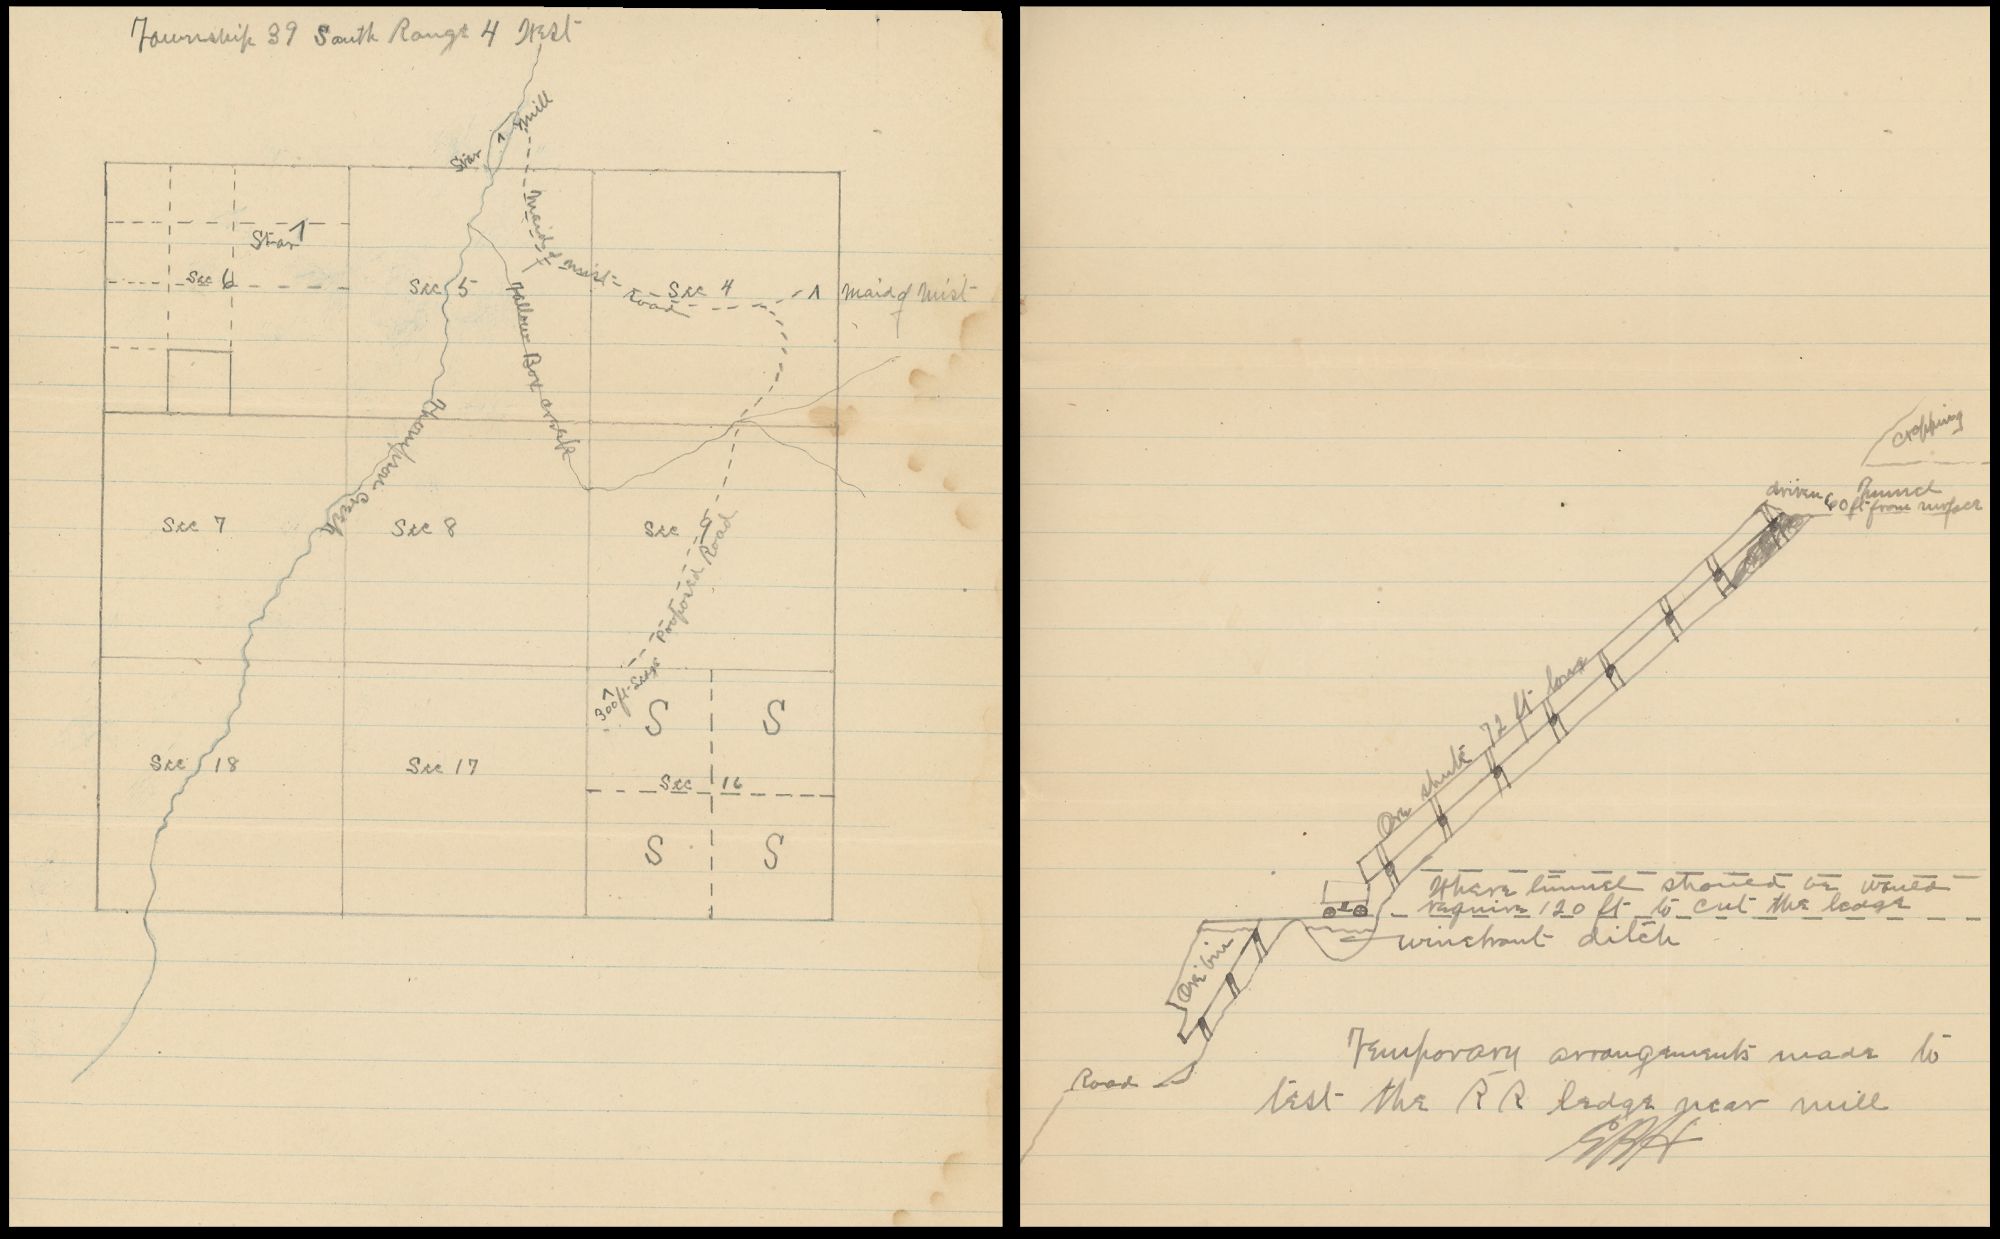 Township 39 South Range 4 West
Star Mill
Star
Sec 6
Sec 5
Maid of Mist Road
Sec 4
Maid of Mist
Yallow Box creek
Thompson creek
Sec 7
Sec 8
Sec 9
Proposed Road
300 ft
S
S
Sec 18
Sec 17
Sec 16
S
S
cropping
Tunnel
driven 60 ft from surface
Ore shute 72 ft long
Where tunnel should be would
require 120 ft to cut the ledge
ditch
Ore bin
Road
Temporary arrangements made to
test the R R ledge near mill